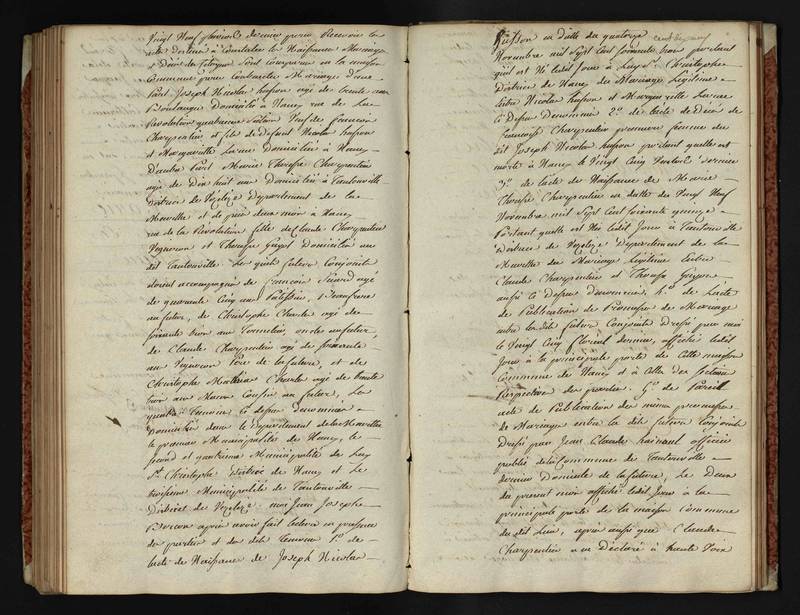 Vingt Neuf pluviose dernier pour Recevoir les
actes destinés à Constater les Naissances Mariages
et Décès des Citoyens sont comparus en la maison
Commune pour Contracter Mariage D'une
Part Joseph Nicolas husson agé de trente ans
Boulanger Domicilié à Nancy rue de La
Révolution quatrieme Section Veuf de francoise
Charpentier et fils de defunt Nicolas husson
et Marguerite Lucee Domiciliés à Nancy
D'autre Part Marie Therese Charpentier
agée de Dix huit ans Domiciliée à Tantonville
District de Vezelize Departement de La
Meurthe et depuis deux mois à Nancy
rue de la Révolution fille de Claude Charpentier
Vigneron et Therese Guyot Domiciliés au
dit Tantonville Lesquels futurs Conjoints
étoient accompagnés de francois
de quarante Cinq ans Patissier,
au futur, de Christophe Charle agé de
soixante trois ans Tonnelier, oncle au futur
de Claude Charpentier agé de soixante
ans Vigneron Pere de la future, et de
Christophe Mathias Charle agé de Trente
trois ans Macon Cousin au futur, Les
quatre Temoins Ci dessus denommés
Domiciliés dans le departement de la Meurthe
le premier Municipalité de Nancy, le
second et quatrieme Municipalité de Ley
St. Christophe District de Nancy et le
troisieme Municipalité de Tantonville
District de Vezelize moi Jean Joseph
Briceon après avoir fait lecture en presence
des parties et des dits Temoins 1º. de
l'acte de Naissance de Joseph Nicolas
husson en datte du quatorze
Novembre mil Sept Cent soixante trois portant
qu'il est Né ledit Jour à Ley St. Christophe
District de Nancy du Mariage Légitime
entre Nicolas husson et Marguerite Lucee
Ci Dessus Denommés 2º. de l'acte de Décès de
francoise Charpentier premiere femme du
dit Joseph Nicolas husson portant qu'elle est
morte à Nancy le Vingt Cinq Ventose dernier
3º. de l'acte de Naissance de Marie
Therese Charpentier en datte du Vingt Neuf
Novembre mil Sept Cent soixante quinze
Portant qu'elle est Née ledit Jour à Tantonville
District de Vezelize Departement de la
Meurthe du Mariage Légitime Entre
Claude Charpentier et Therese Guyot
aussi Ci dessus denommés 4º. de L'acte
de Publication de Promesses de Mariage
entre les dits futurs Conjoints Dressé par moi
le Vingt Cinq floréal dernier, affiché ledit
Jour à la principale porte de Cette maison
Commune de Nancy et à Celle des Sections
Respectives des parties 5º. de Pareil
acte de Publication des mêmes promesses
de Mariage entre les dits futurs Conjoints
Dressé par Jean Claude hainaut officier
public de la Commune de Tantonville
dernier Domicile de la future, Le Deux
du present mois affiché ledit Jour à la
principale porte de la maison Commune
du dit Lieu, après aussi que Claude
Charpentier a eu Déclaré à haute Voix